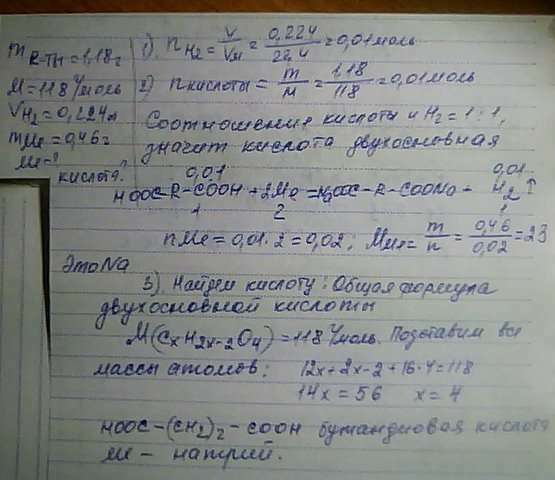 m к-ты = 1,18г
M = 118 г/моль
V H2 = 0,224л
m Me = 0,46г
Me - ?
кислота - ?
1). n H2 = V/Vм = 0,224/22,4 = 0,01 моль
2) n кислоты = m/M = 1,18/118 = 0,01 моль
Соотношение кислоты и H2 = 1:1,
значит кислота двухосновная
0,01 0,01
HOOC-R-COOH + 2Me = NaOOC-R-COONa + H2↑
1 2 1
n Me = 0,01·2 = 0,02; M Me = m/n = 0,46/0,02 = 23
Это Na
3). Найдем кислоту: Общая формула
двухосновной кислоты
M(CxH2x-2O4) = 118 г/моль. Подставим все
массы атомов: 12x + 2x - 2 + 16·4 = 118
14x = 56 x = 4
HOOC-(CH2)2-COOH бутандиовая кислота
Me - натрий.